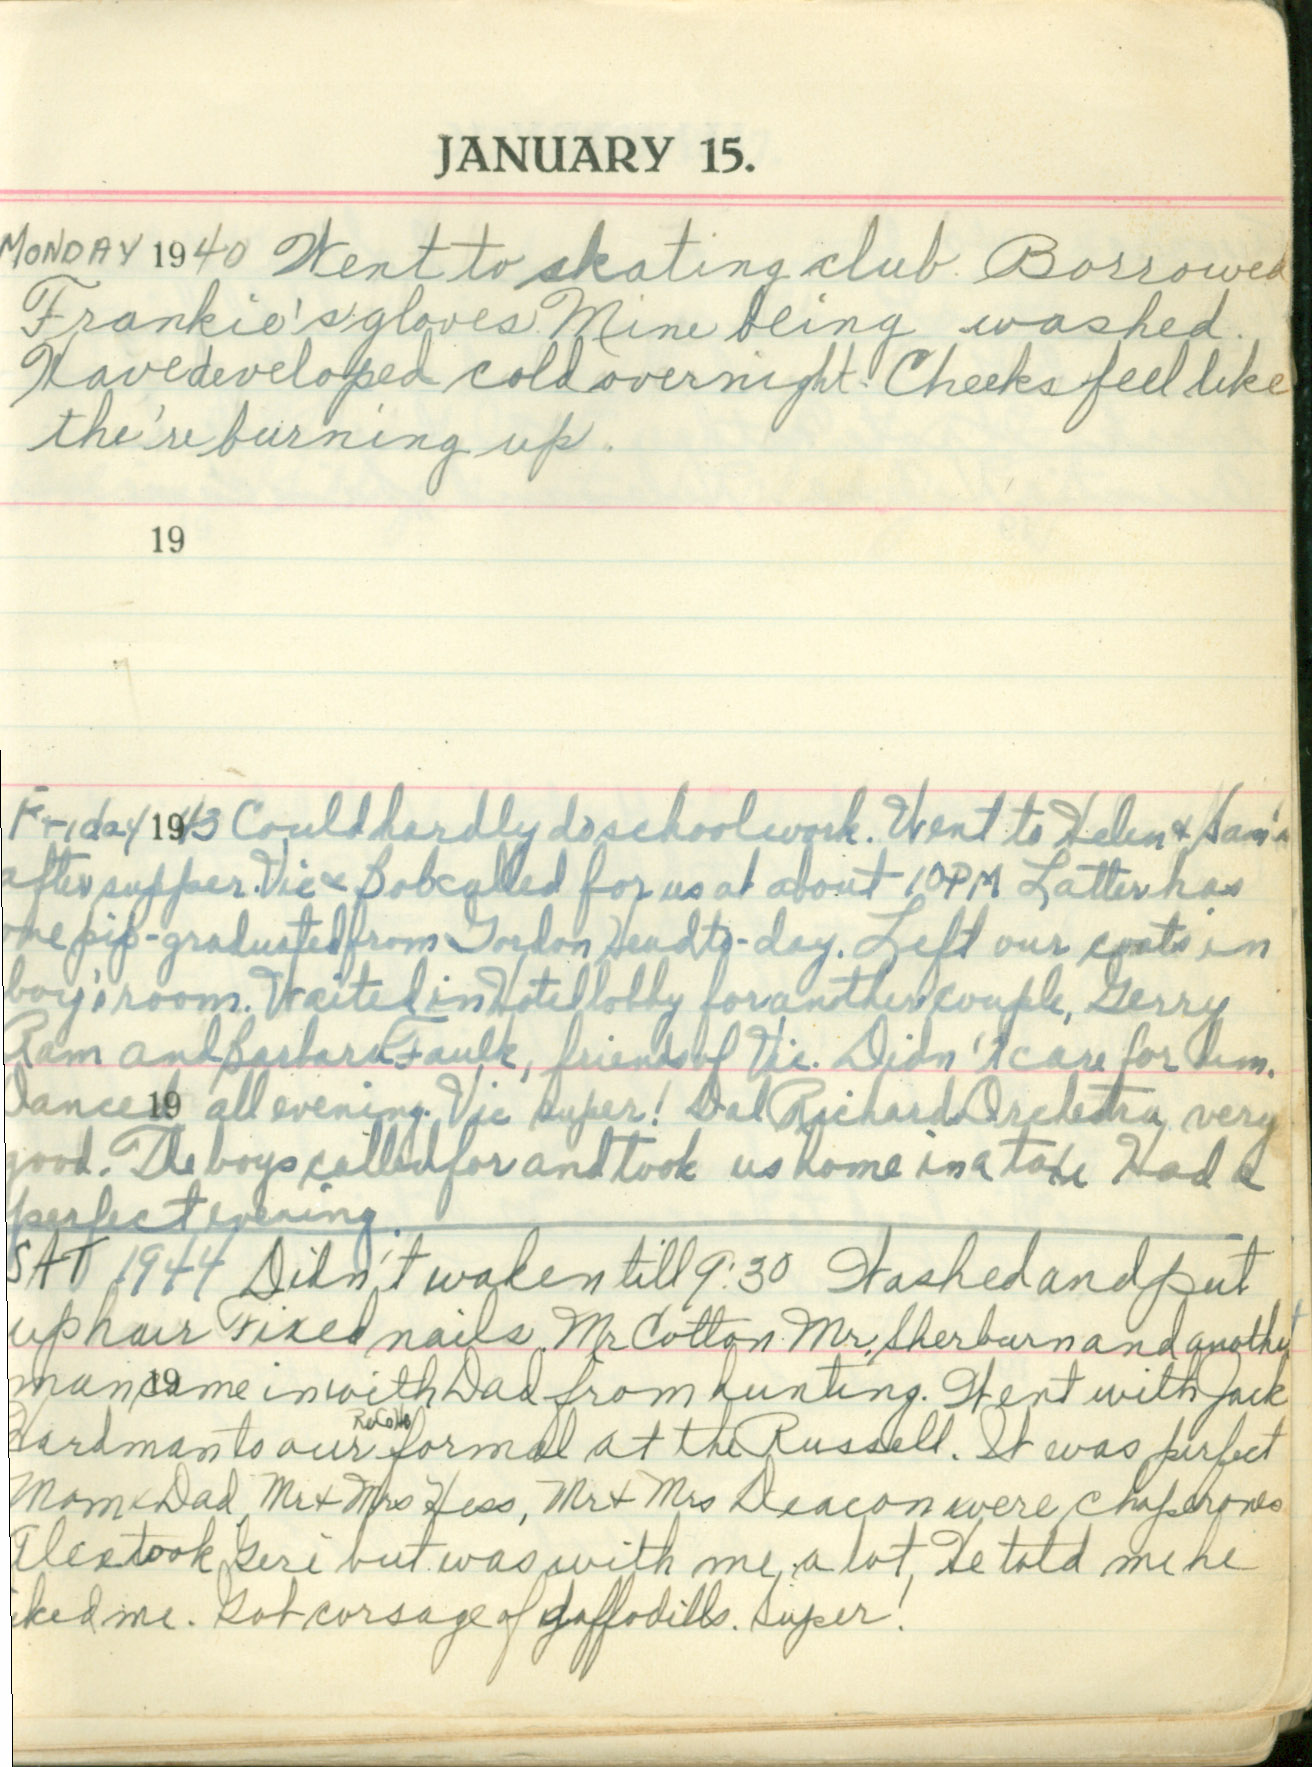 JANUARY 15.
MONDAY 1940 Went to skating club. Borrowed
Frankie's gloves. Mine being washed.
Have developed cold overnight. Cheeks feel like
the're burning up.
19
Friday 1943 Could hardly do schoolwork. Went to Helen & Sam's
after supper. Vic & Bob called for us at about 10PM Latter has
one pip-graduated from Gordon Head to-day. Left our coats in
boy's room. Waited in Hotel lobby for another couple, Gerry
Ram and Barbara Faulk, friends of Vic. Didn't care for him.
Danced 19 all evening. Vic super! Dal Richards Orchestra very
good. The boys called for and took us home in a taxi Had a
perfect evening.
SAT 1944 Didn't waken till 9:30 Washed and put
up hair Fixed nails. Mr Cotton Mr. Sherburn and another
man 19 came in with Dad from hunting. Went with Jack
Hardman to our formal at the Russell. It was perfect
Mom & Dad, Mr & Mrs Hess, Mr & Mrs Deacon were chaperones
Alex took Geri but was with me a lot, He told me he
iked me. Got corsage of daffodills. Super!